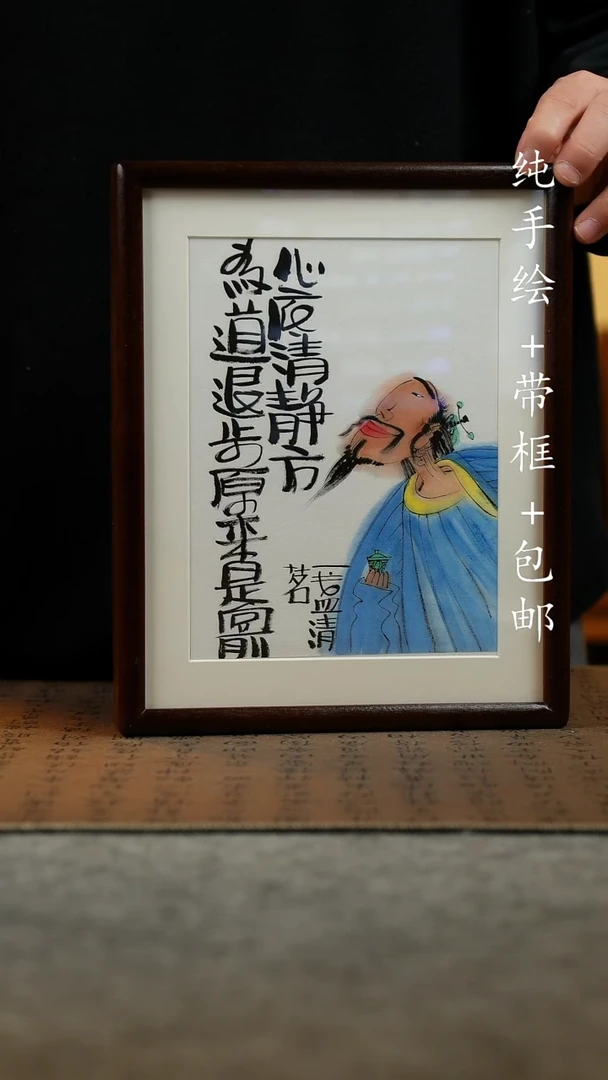 心底清静方
為道退步原来是向前
一盏清
茗
纯手绘+带框+包邮